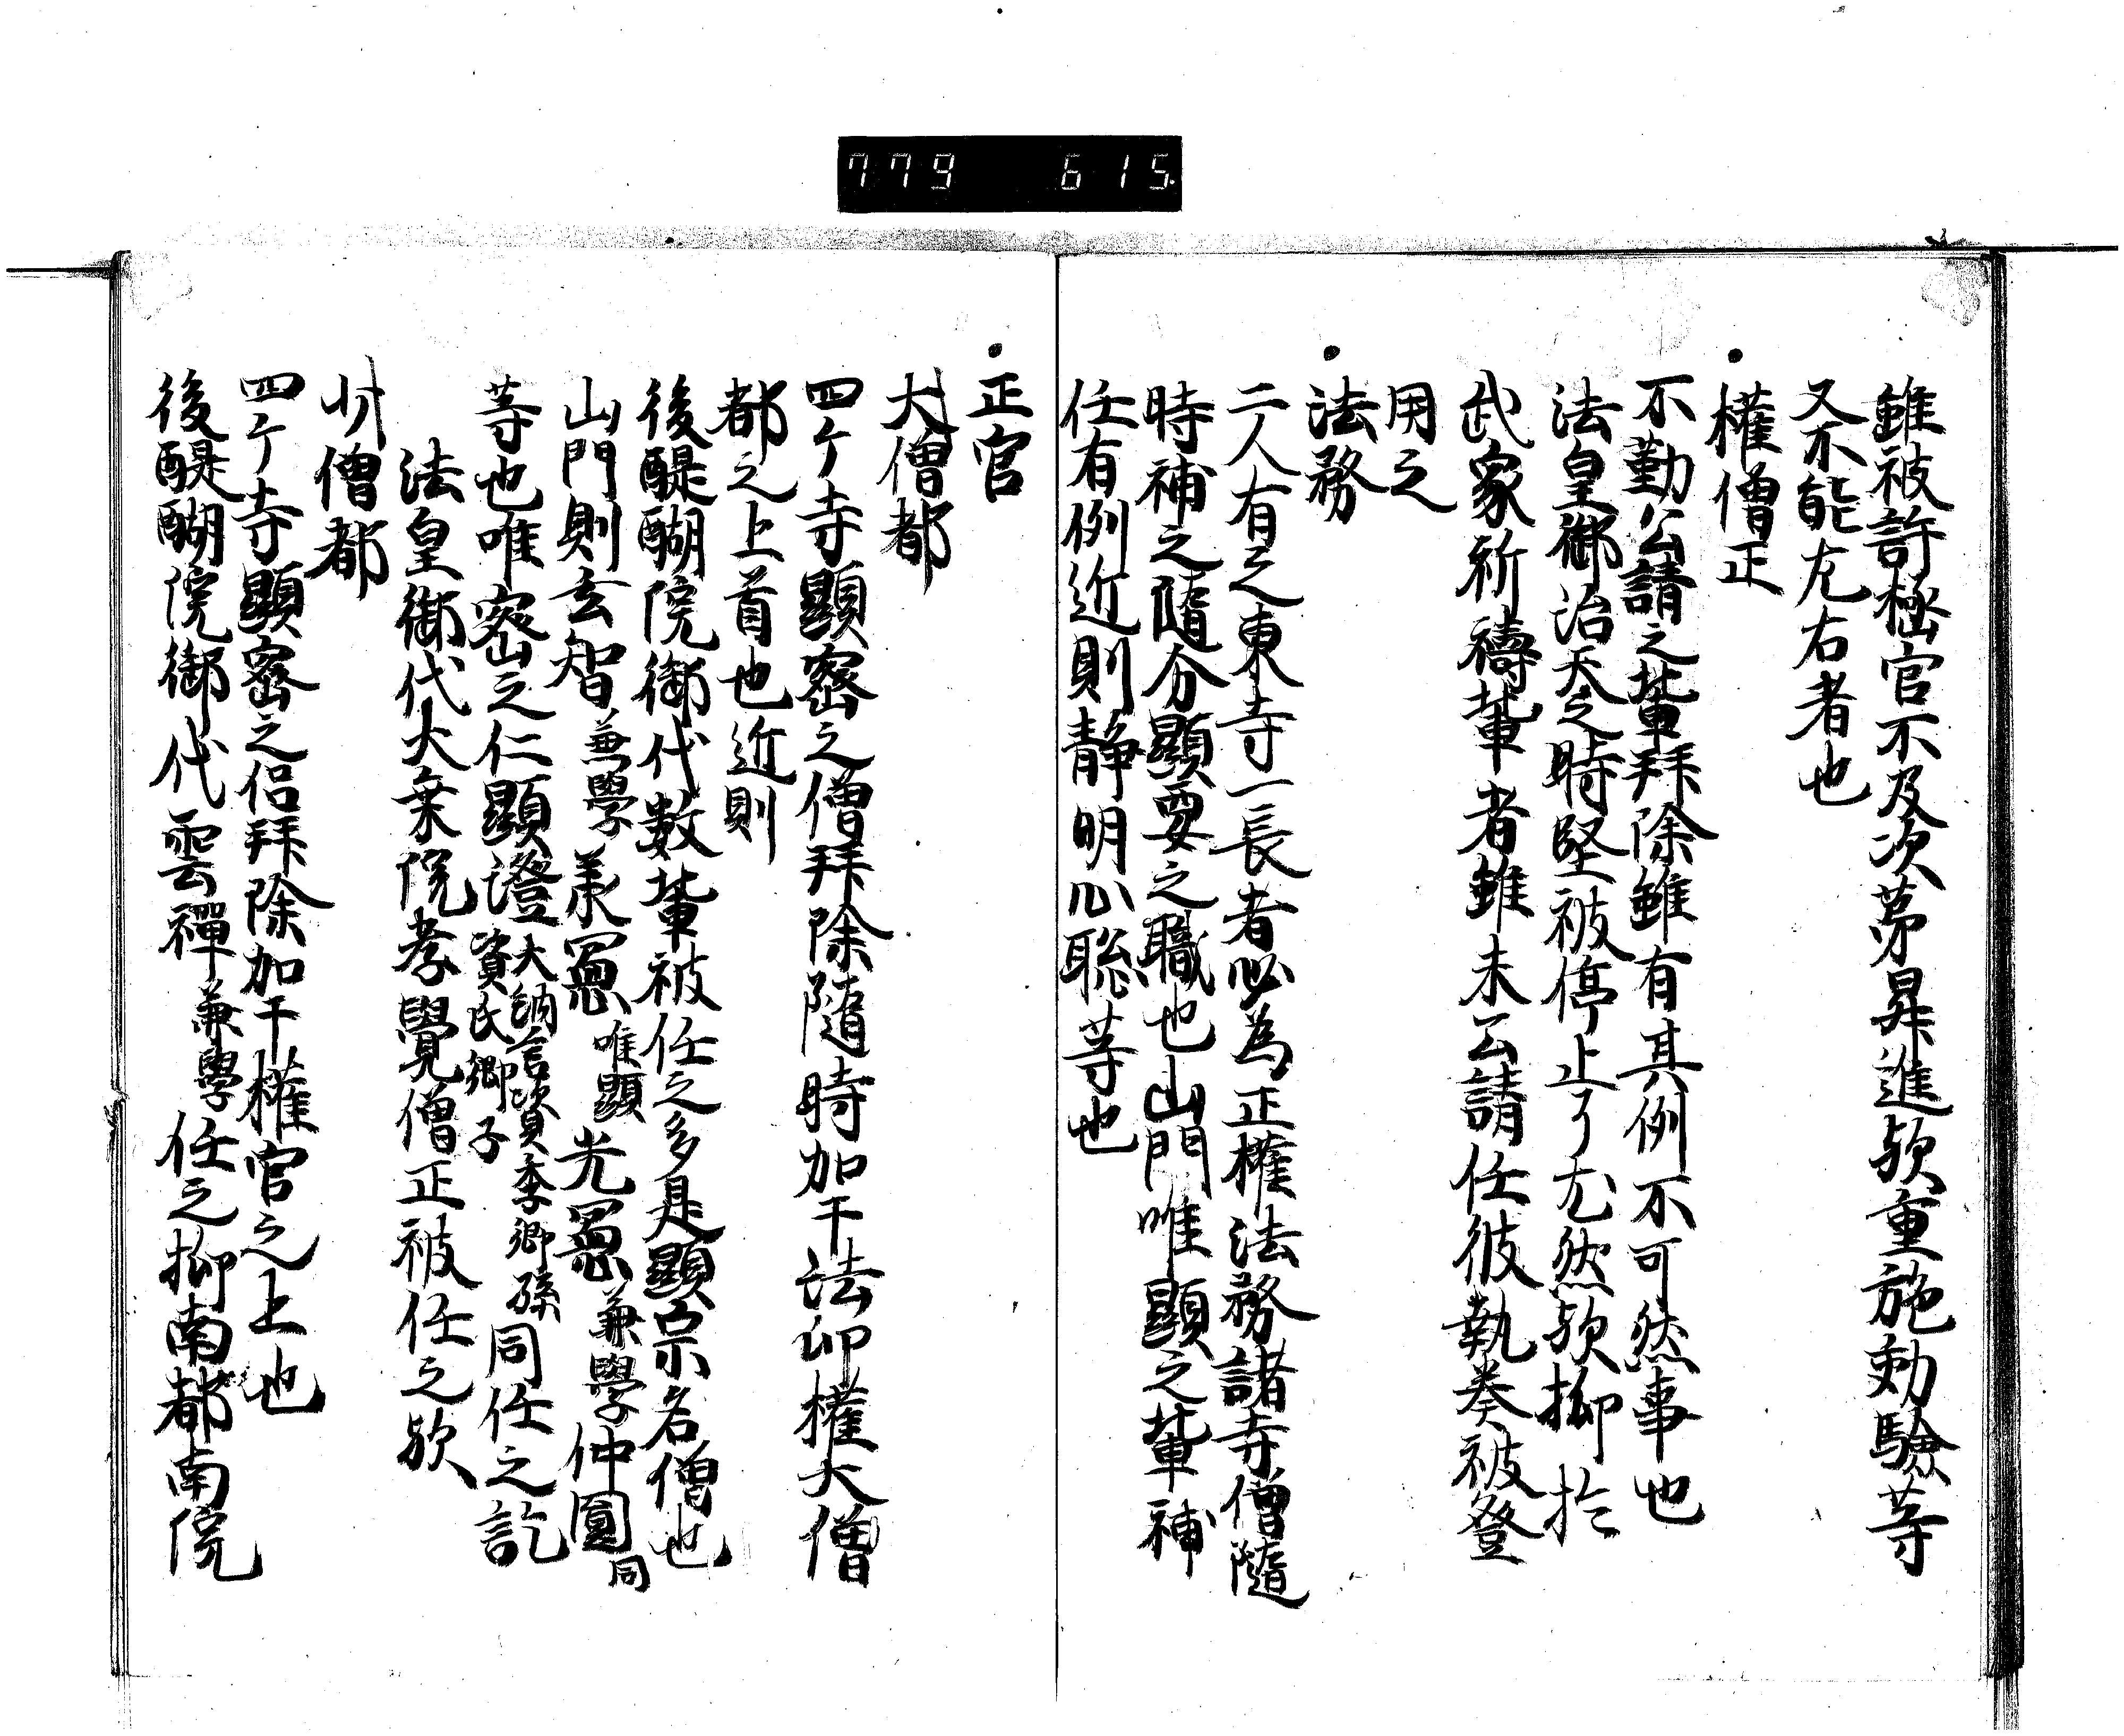 779 615
雖被許極官不及次第昇進歟重施効驗等
又不能左右者也
權僧正
不勤公請之輩拜除雖有其例不可然事也
法皇御治天之時堅被停止了尤然歟抑於
武家祈禱輩者雖未公請任彼執奏被登
用之
法務
二人有之東寺一長者必為正權法務諸寺僧隨
時補之隨分顯要之職也山門唯顯之輩補
任有例近則静明心聡等也
正官
大僧都
四ケ寺顯密之僧拜除隨時加干法印權大僧
都之上首也近則
後醍醐院御代数輩被任之多是顯宗名僧也
山門則玄智兼學 唯顯 光 兼學 仲圓同
等也唯密之仁顯證大納言資季卿孫資氏卿子同任之訖
法皇御代大乗院孝覺僧正被任之歟
少僧都
四ケ寺顯密之侶拜除加干權官之上也
後醍醐院御代雲禪兼學任之抑南都南院